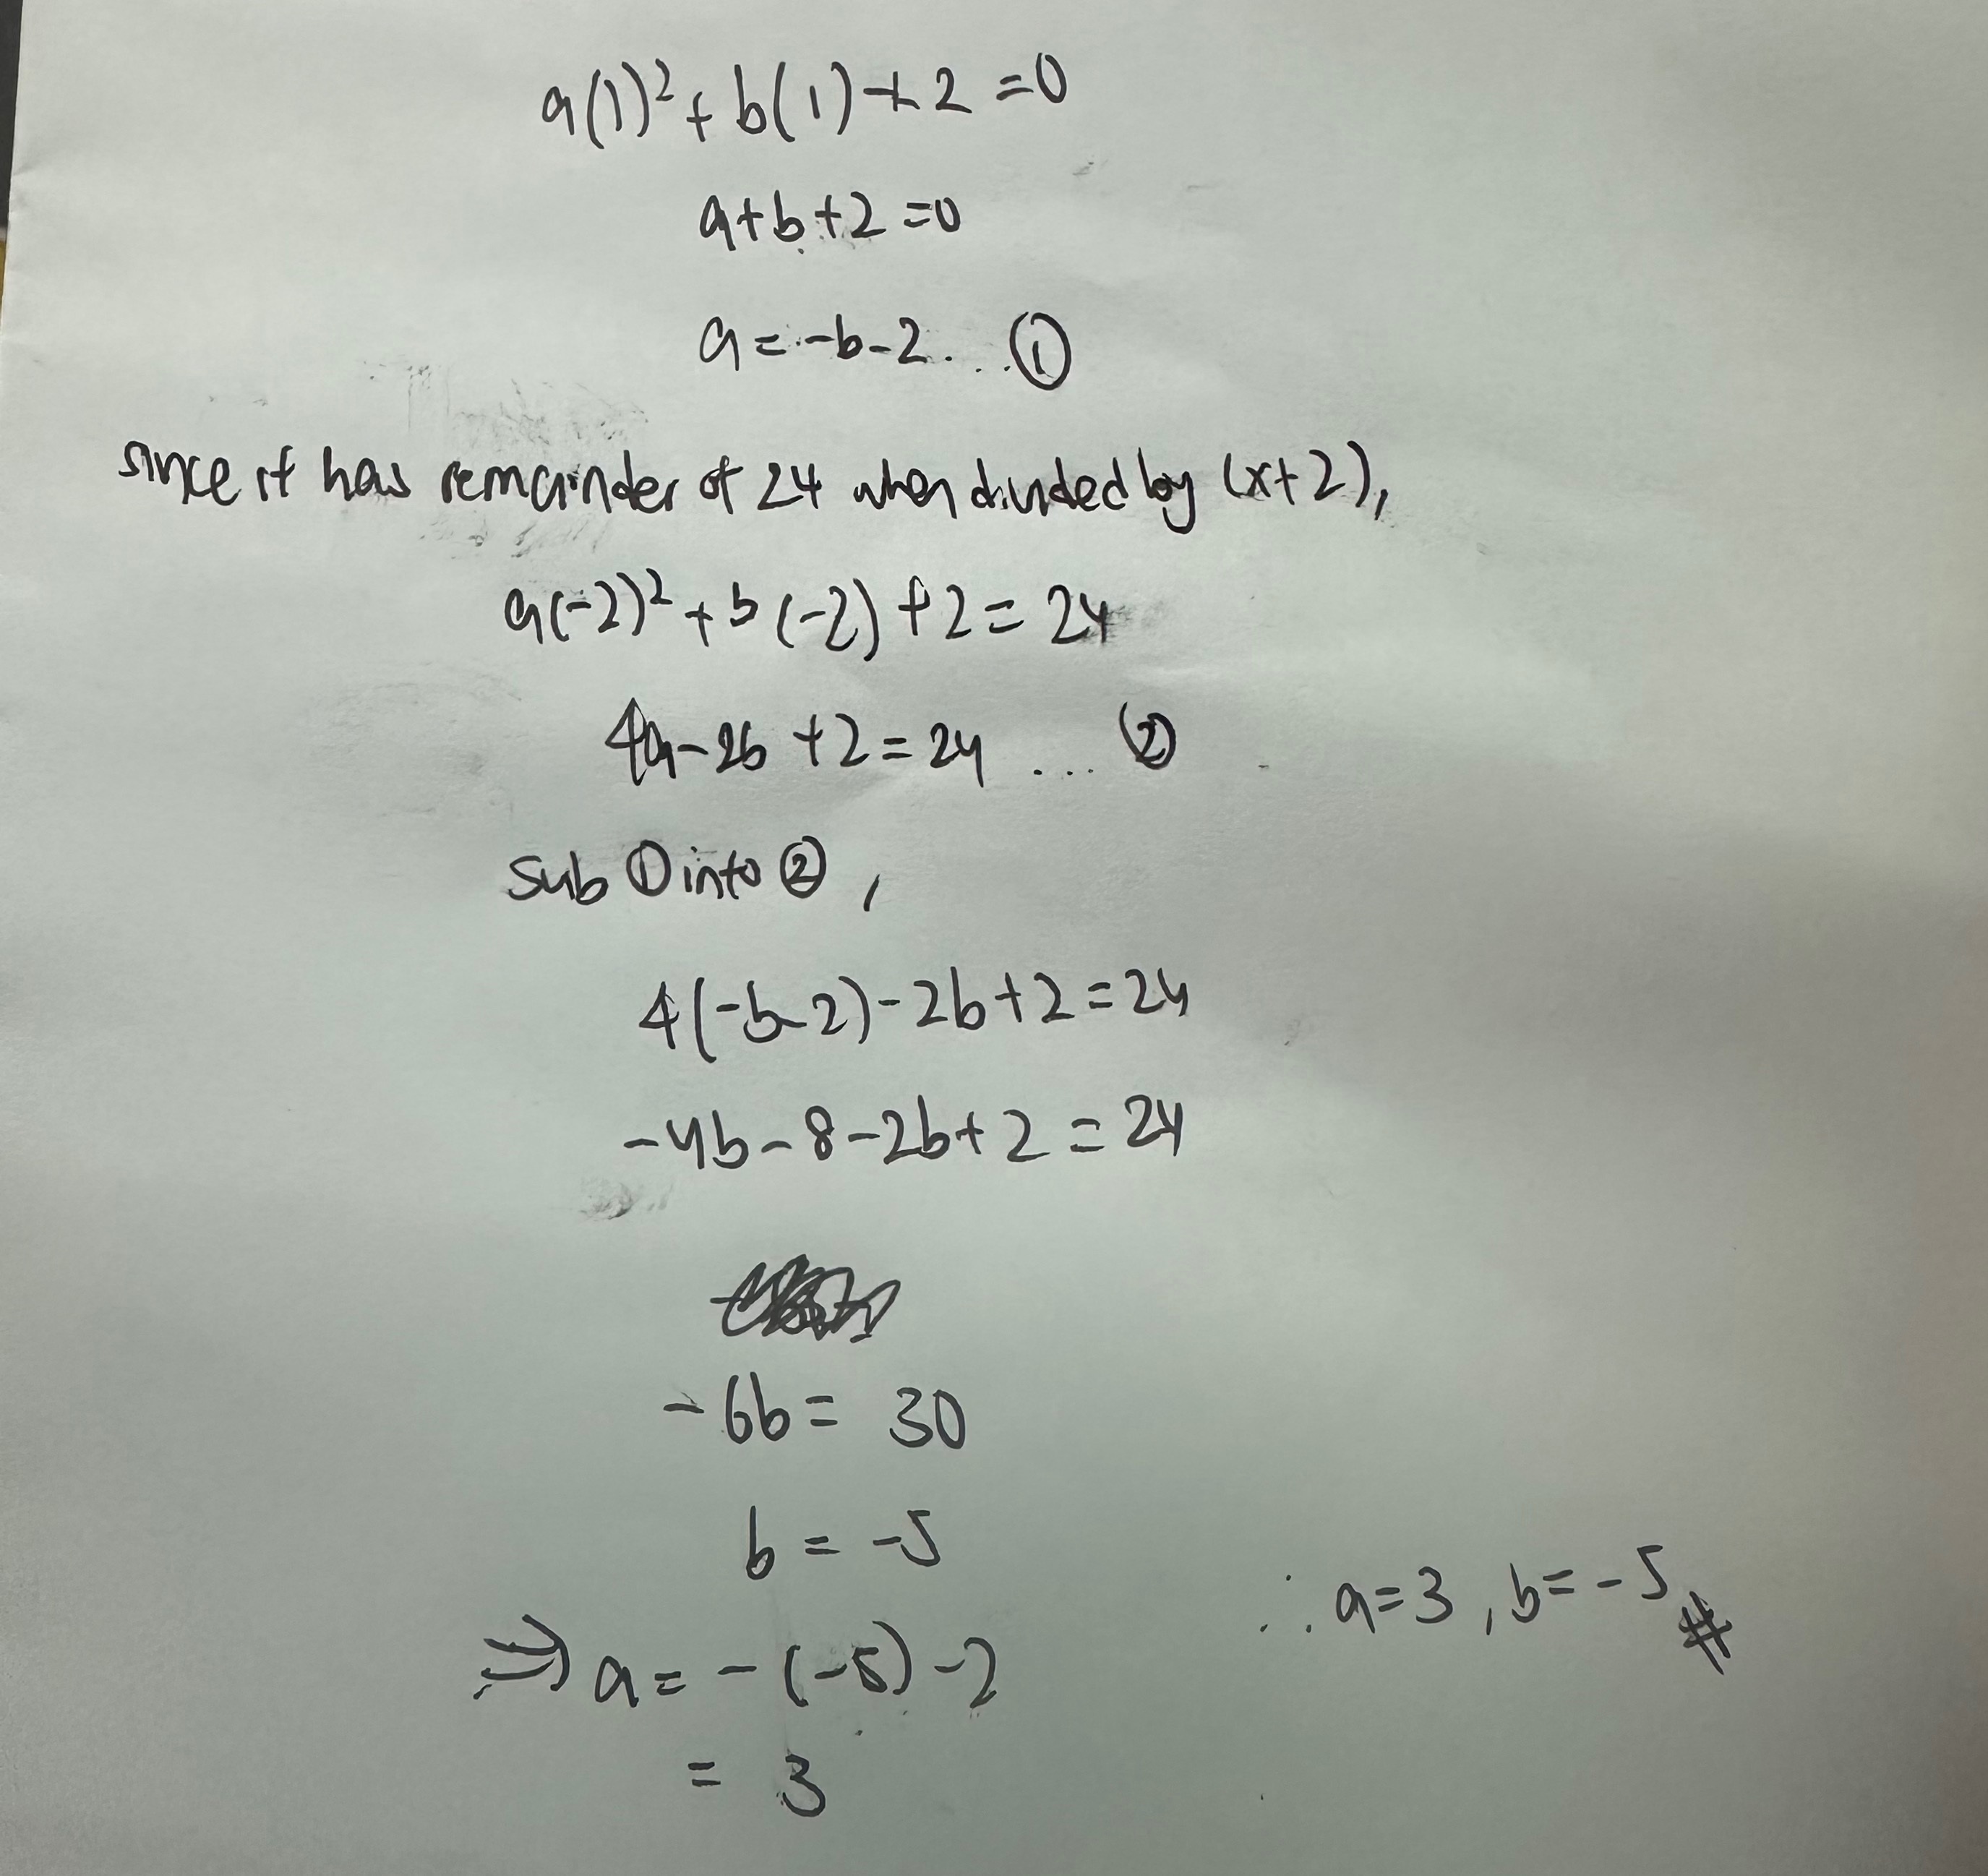 a(1)² + b(1) + 2 = 0
a + b + 2 = 0
a = -b - 2 ... ①
since it has remainder of 24 when divided by (x+2),
a(-2)² + b(-2) + 2 = 24
4a - 2b + 2 = 24 ... ②
sub ① into ②,
4(-b-2) - 2b + 2 = 24
-4b - 8 - 2b + 2 = 24
-6b = 30
b = -5
⇒ a = -(-5) - 2
= 3
∴ a = 3, b = -5 #